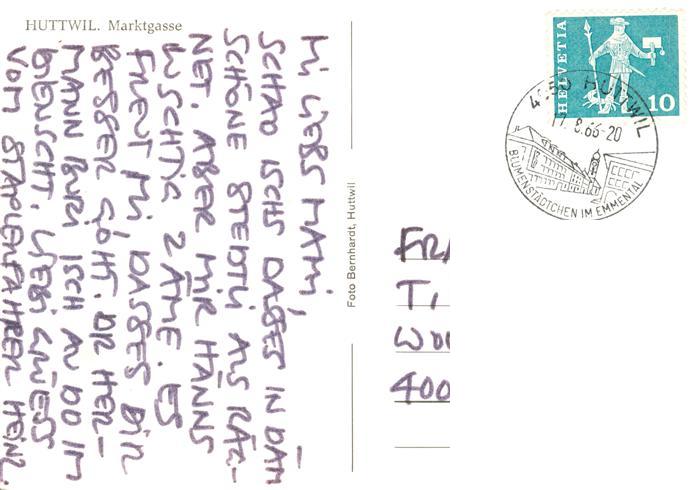 HUTTWIL. Marktgasse
MI LIEBS MAMI,
SCHAD ISCHS DASSES IN DÄM
SCHÖNE STEDTLI ALS RÄG-
NET. ABER MIR HÄNNS
LUSCHTIG ZÄME. ES
FREUT MI DASSES DIR
BESSER GOHT. DR HER-
MANN BURI ISCH AU DO IM
DIENSCHT. LIEBI GRÜESS
VOM STAPLERFAHRER HEINZ.
Foto Bernhardt, Huttwil
HELVETIA
10
4950 HUTTWIL
8.66-20
BLUMENSTÄDTCHEN IM EMMENTAL
FRA
TI
WO
400